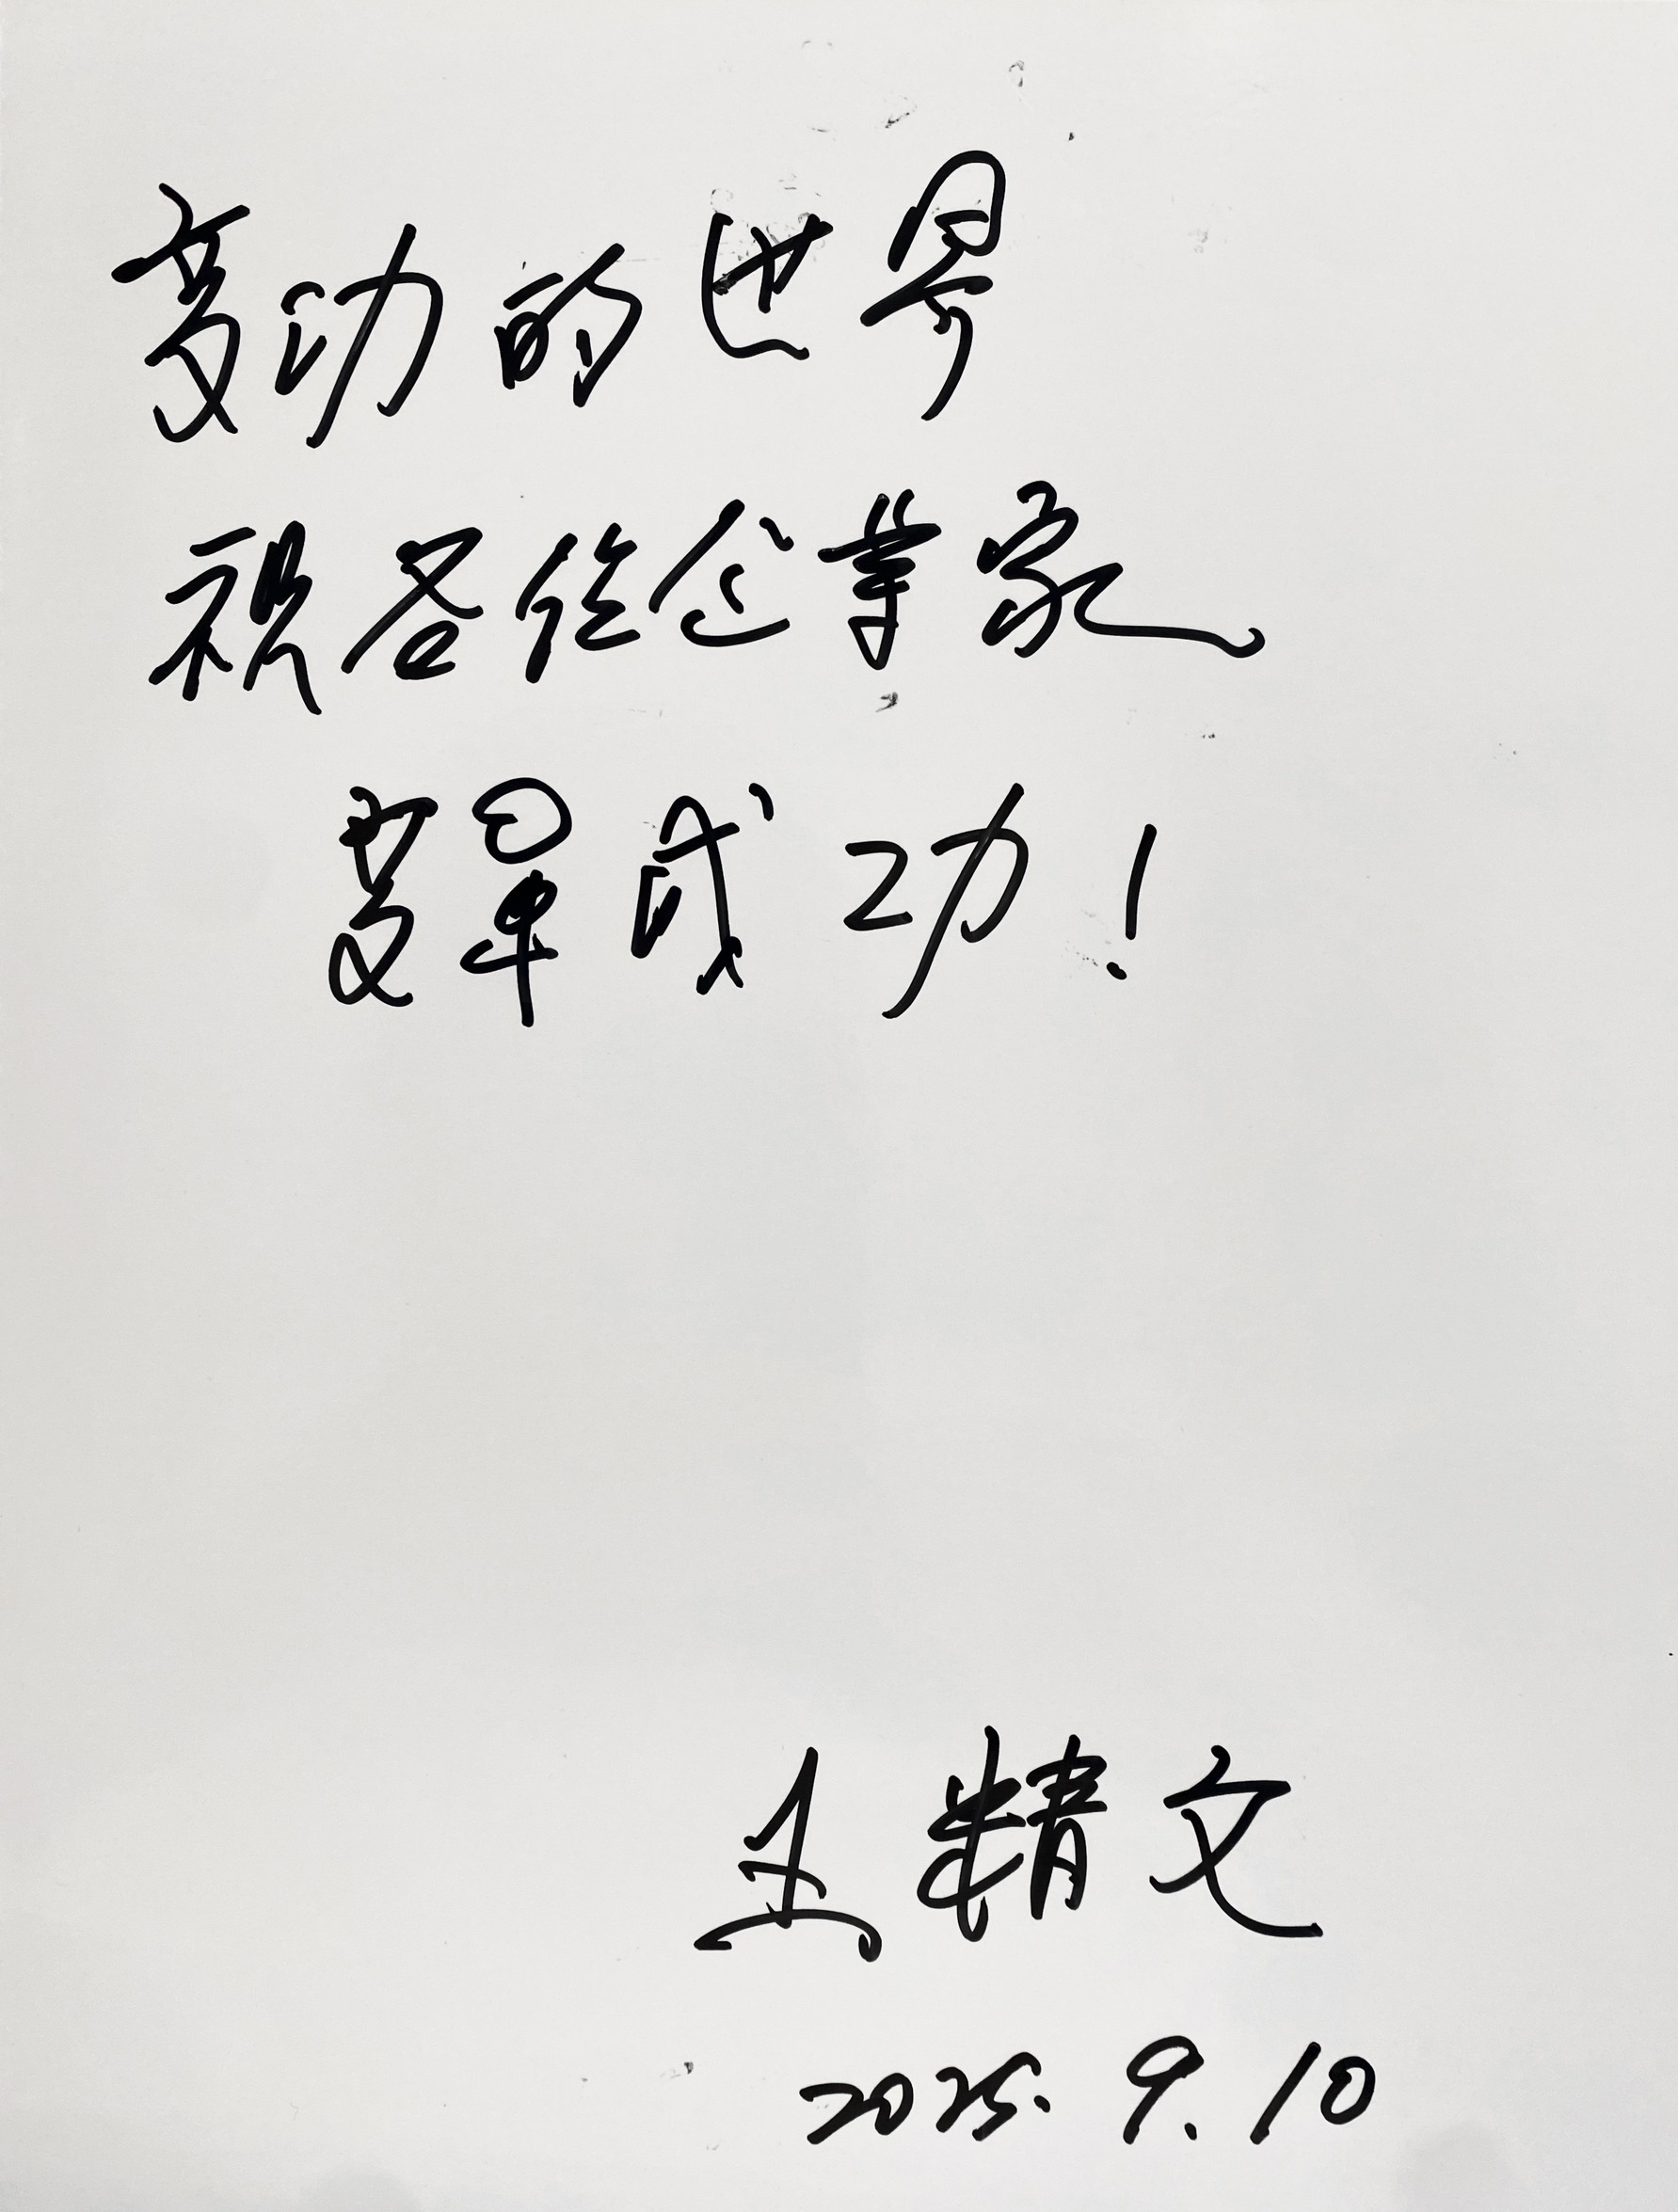 变动的世界
祝各位企業家
发展成功!
王精文
2025.9.10